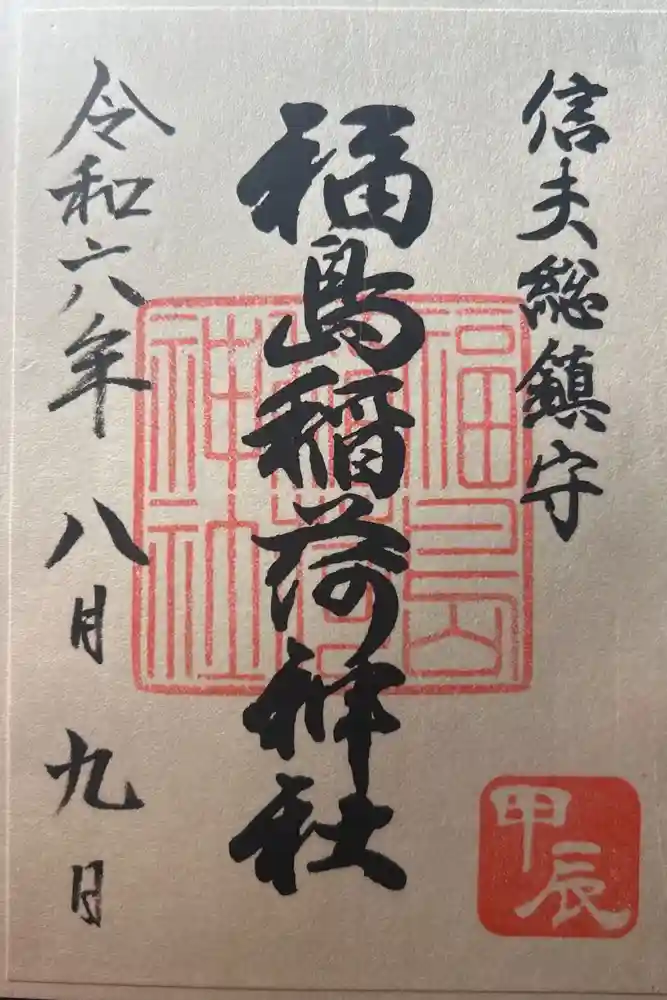 信夫総鎮守
福島稲荷神社
令和六年 八月 九日
福島
稲荷
神社
甲辰